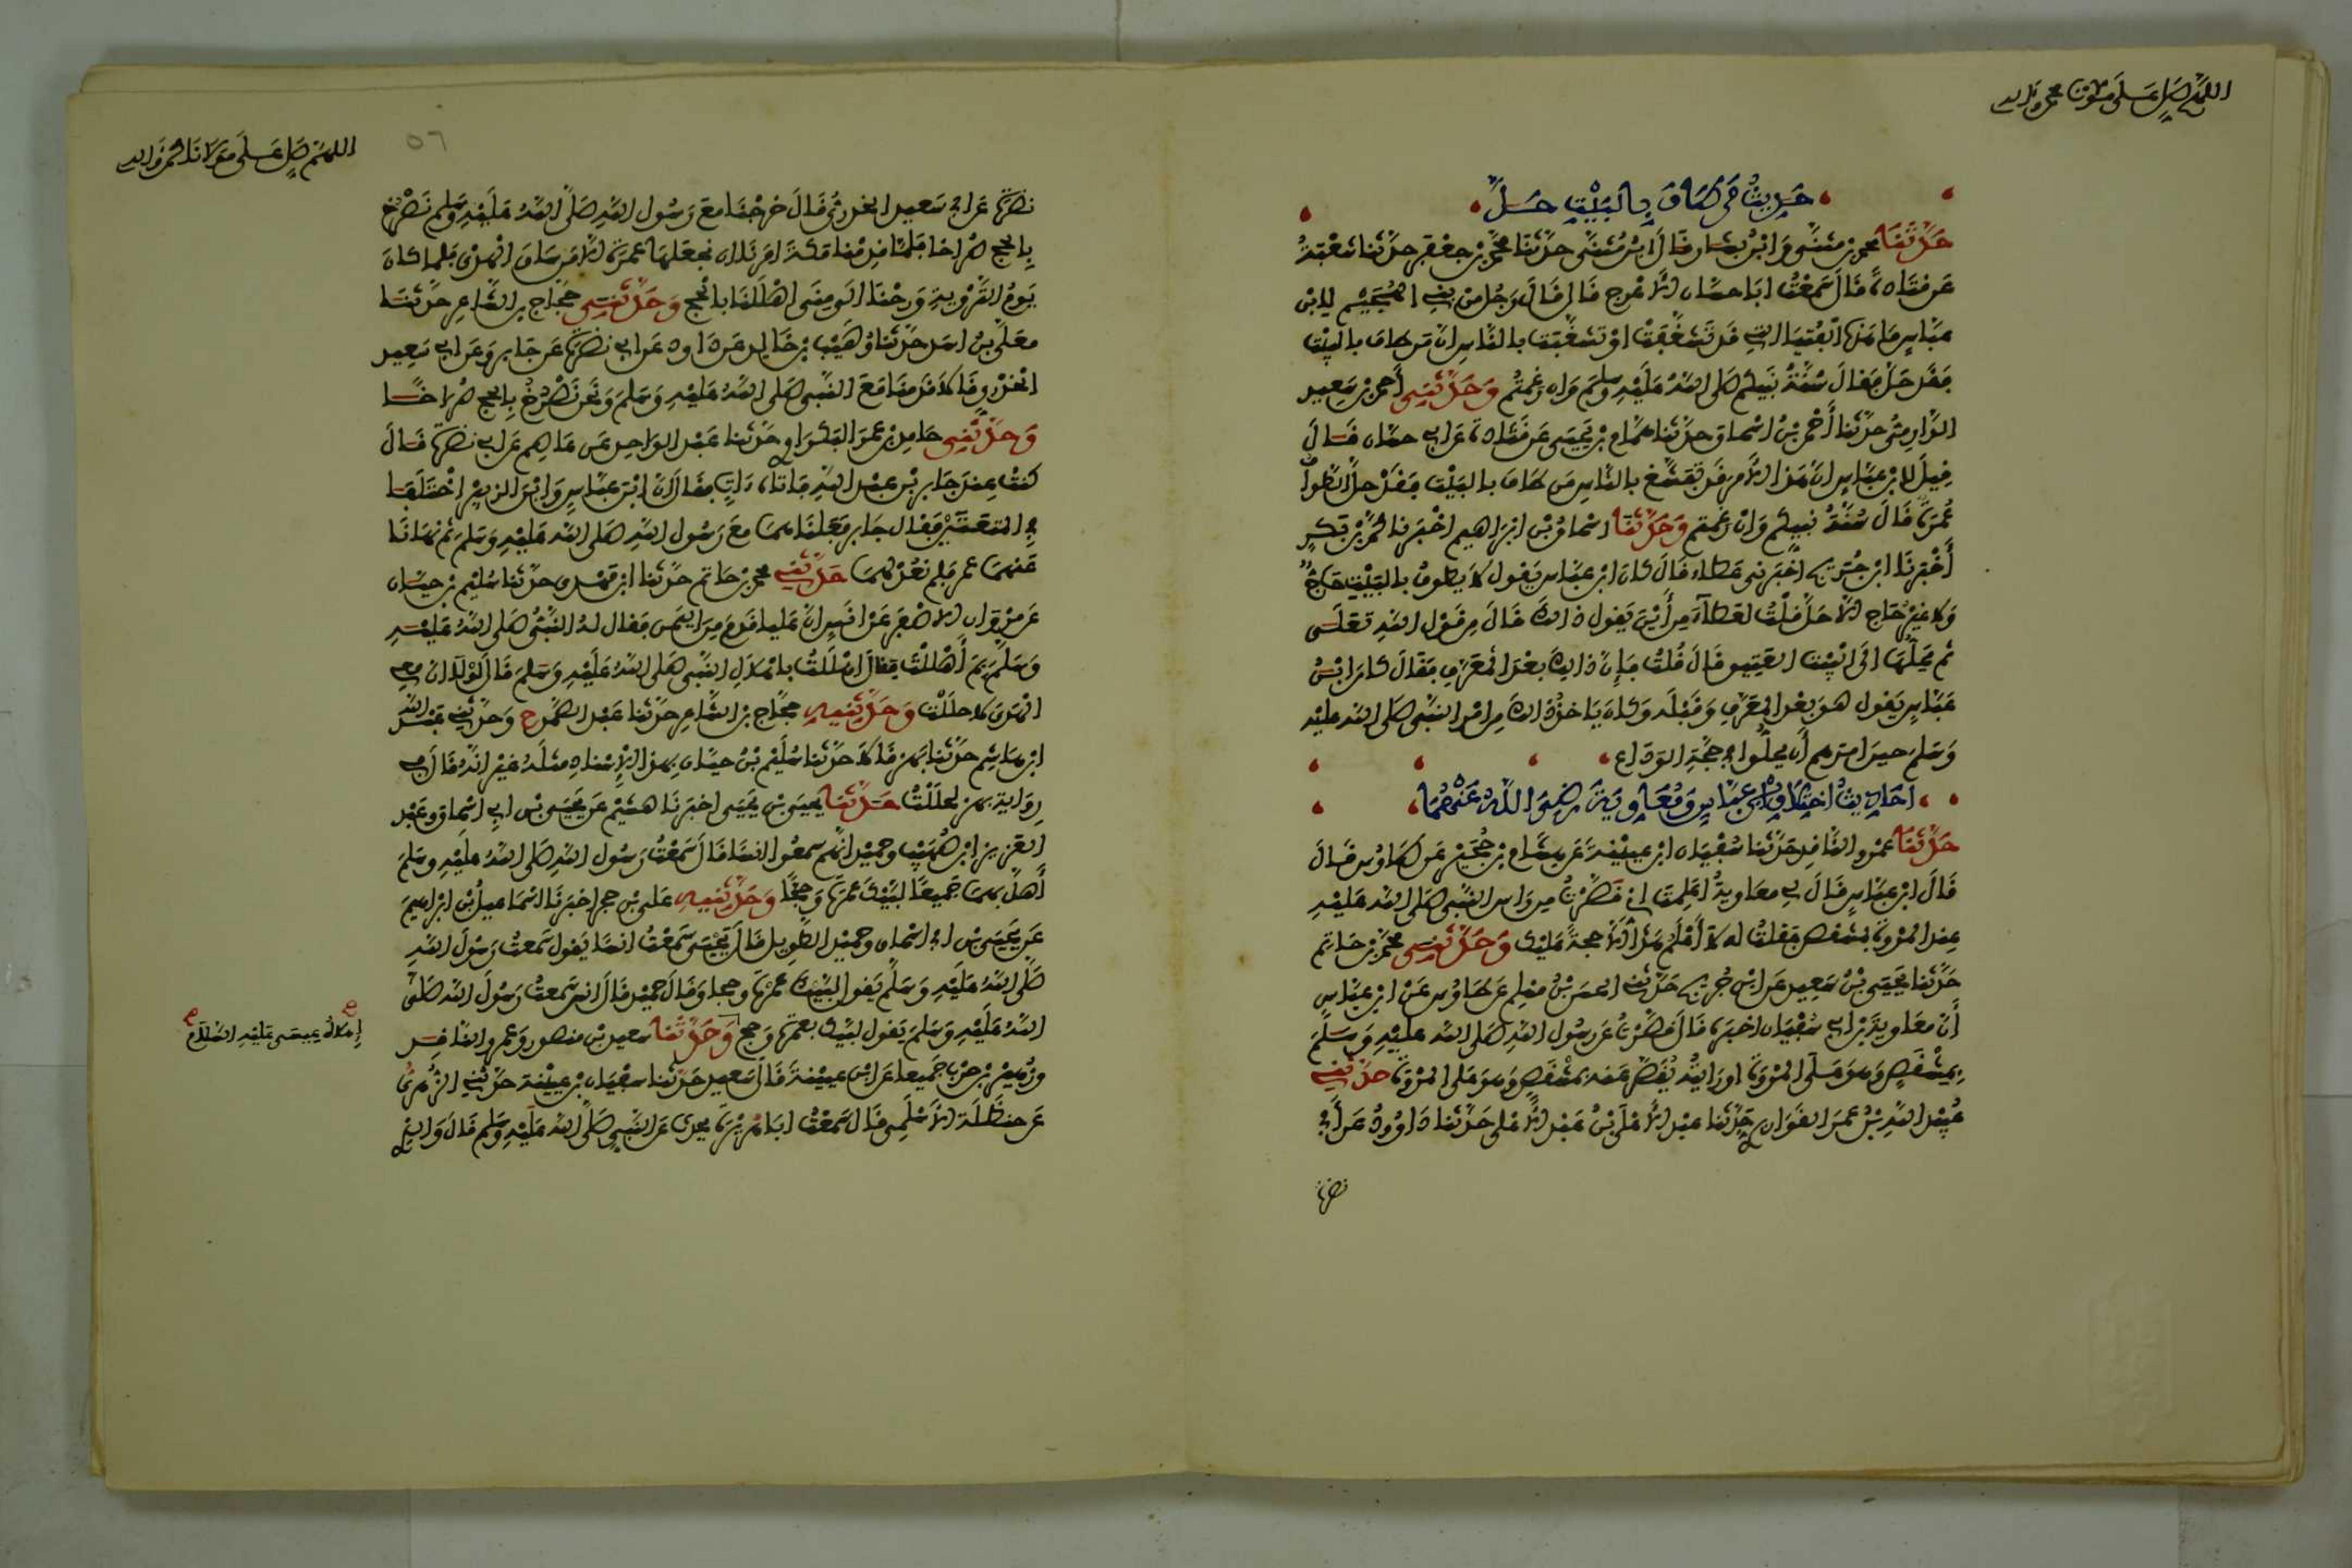 اللهم صل على مولانا محمد وآله
حديث من طاف بالبيت حل
حدثنا محمد بن مثنى وابن بشار قال ابن مثنى حدثنا محمد بن جعفر حدثنا شعبة
عن قتادة قال سمعت ابا حسان الاعرج قال قال رجل من بني الهجيم لابن
عباس ما هذه الفتيا التي قد تشغفت او تشغبت بالناس ان من طاف بالبيت
فقد حل فقال سنة نبيكم صلى الله عليه وسلم وان رغمتم وحدثني أحمد بن سعيد
الدارمي حدثنا أحمد بن اسحاق حدثنا همام بن يحيى عن قتادة عن ابي حسان قال
قيل لابن عباس ان هذا الامر قد تفشغ بالناس من طاف بالبيت فقد حل الطواف
عمرة قال سنة نبيكم وان رغمتم وحدثنا اسحاق بن ابراهيم اخبرنا محمد بن بكر
أخبرنا ابن جريج اخبرني عطاء قال كان ابن عباس يقول لا يطوف بالبيت حاج
ولا غير حاج الا حل قلت لعطاء من أين يقول ذالك قال من قول الله تعلى
ثم محلها الى البيت العتيق قال قلت فإن ذالك بعد المعرف فقال كان ابن
عباس يقول هو بعد المعرف وقبله وكان ياخذ ذالك من امر النبي صلى الله عليه
وسلم حين امرهم أن يحلوا في حجة الوداع
احاديث اختلاف ابن عباس ومعاوية رضي الله عنهما
حدثنا عمرو الناقد حدثنا سفيان ابن عيينة عن هشام بن حجير عن طاوس قال
قال ابن عباس قال لي معاوية اعلمت اني قصرت من راس النبي صلى الله عليه
عند المروة بمشقص فقلت له لا أعلم هذا الا حجة عليك وحدثني محمد بن حاتم
حدثنا يحيى بن سعيد عن ابن جريج حدثني الحسن بن مسلم عن طاوس عن ابن عباس
أن معاوية بن ابي سفيان اخبره قال قصرت عن رسول الله صلى الله عليه وسلم
بمشقص وهو على المروة او رايته يقصر عنه بمشقص وهو على المروة حدثني
عبيد الله بن عمر القواريري حدثنا عبد الاعلى بن عبد الاعلى حدثنا داوود عن أبي
نضرة
اللهم صل على مولانا محمد وآله
٥٦
نضرة عن ابي سعيد الخدري قال خرجنا مع رسول الله صلى الله عليه وسلم نصرخ
بالحج صراخا فلما قدمنا مكة امرنا ان نجعلها عمرة الا من ساق الهدي فلما كان
يوم التروية ورحنا الى منى اهللنا بالحج وحدثني حجاج بن الشاعر حدثنا
معلى بن اسد حدثنا وهيب بن خالد عن داود عن ابي نضرة عن جابر وعن ابي سعيد
الخدري قالا قدمنا مع النبي صلى الله عليه وسلم ونحن نصرخ بالحج صراخا
وحدثني حامد بن عمر البكراوي حدثنا عبد الواحد عن عاصم عن ابي نضرة قال
كنت عند جابر بن عبد الله فاتاه ءات فقال ان ابن عباس وابن الزبير اختلفا
في المتعتين فقال جابر فعلناهما مع رسول الله صلى الله عليه وسلم ثم نهانا
عنهما عمر فلم نعد لهما حدثني محمد بن حاتم حدثنا ابن مهدي حدثنا سليم بن حيان
عن مروان الاصفر عن انس ان عليا قدم من اليمن فقال له النبي صلى الله عليه
وسلم بم أهللت فقال اهللت باهلال النبي صلى الله عليه وسلم قال لولا ان معي
الهدي لاحللت وحدثنيه حجاج بن الشاعر حدثنا عبد الصمد ح وحدثني عبد الله
ابن هاشم حدثنا بهز قالا حدثنا سليم بن حيان بهذا الإسناد مثله غير انه قال في
رواية بهز لحللت حدثنا يحيى بن يحيى اخبرنا هشيم عن يحيى بن ابي اسحاق وعبد
العزيز ابن صهيب وحميد انهم سمعوا انسا قال سمعت رسول الله صلى الله عليه وسلم
أهل بهما جميعا لبيك عمرة وحجا وحدثنيه علي بن حجر اخبرنا اسماعيل بن ابراهيم
عن يحيى بن ابي اسحاق وحميد الطويل قال يحيى سمعت انسا يقول سمعت رسول الله
صلى الله عليه وسلم يقول لبيك عمرة وحجا وقال حميد قال انس سمعت رسول الله صلى
الله عليه وسلم يقول لبيك بعمرة وحج وحدثنا سعيد بن منصور وعمرو الناقد
وزهير بن حرب جميعا عن ابن عيينة قال سعيد حدثنا سفيان بن عيينة حدثني الزهري
عن حنظلة الاسلمي قال سمعت ابا هريرة يحدث عن النبي صلى الله عليه وسلم قال والذي
إهلال عيسى عليه السلام